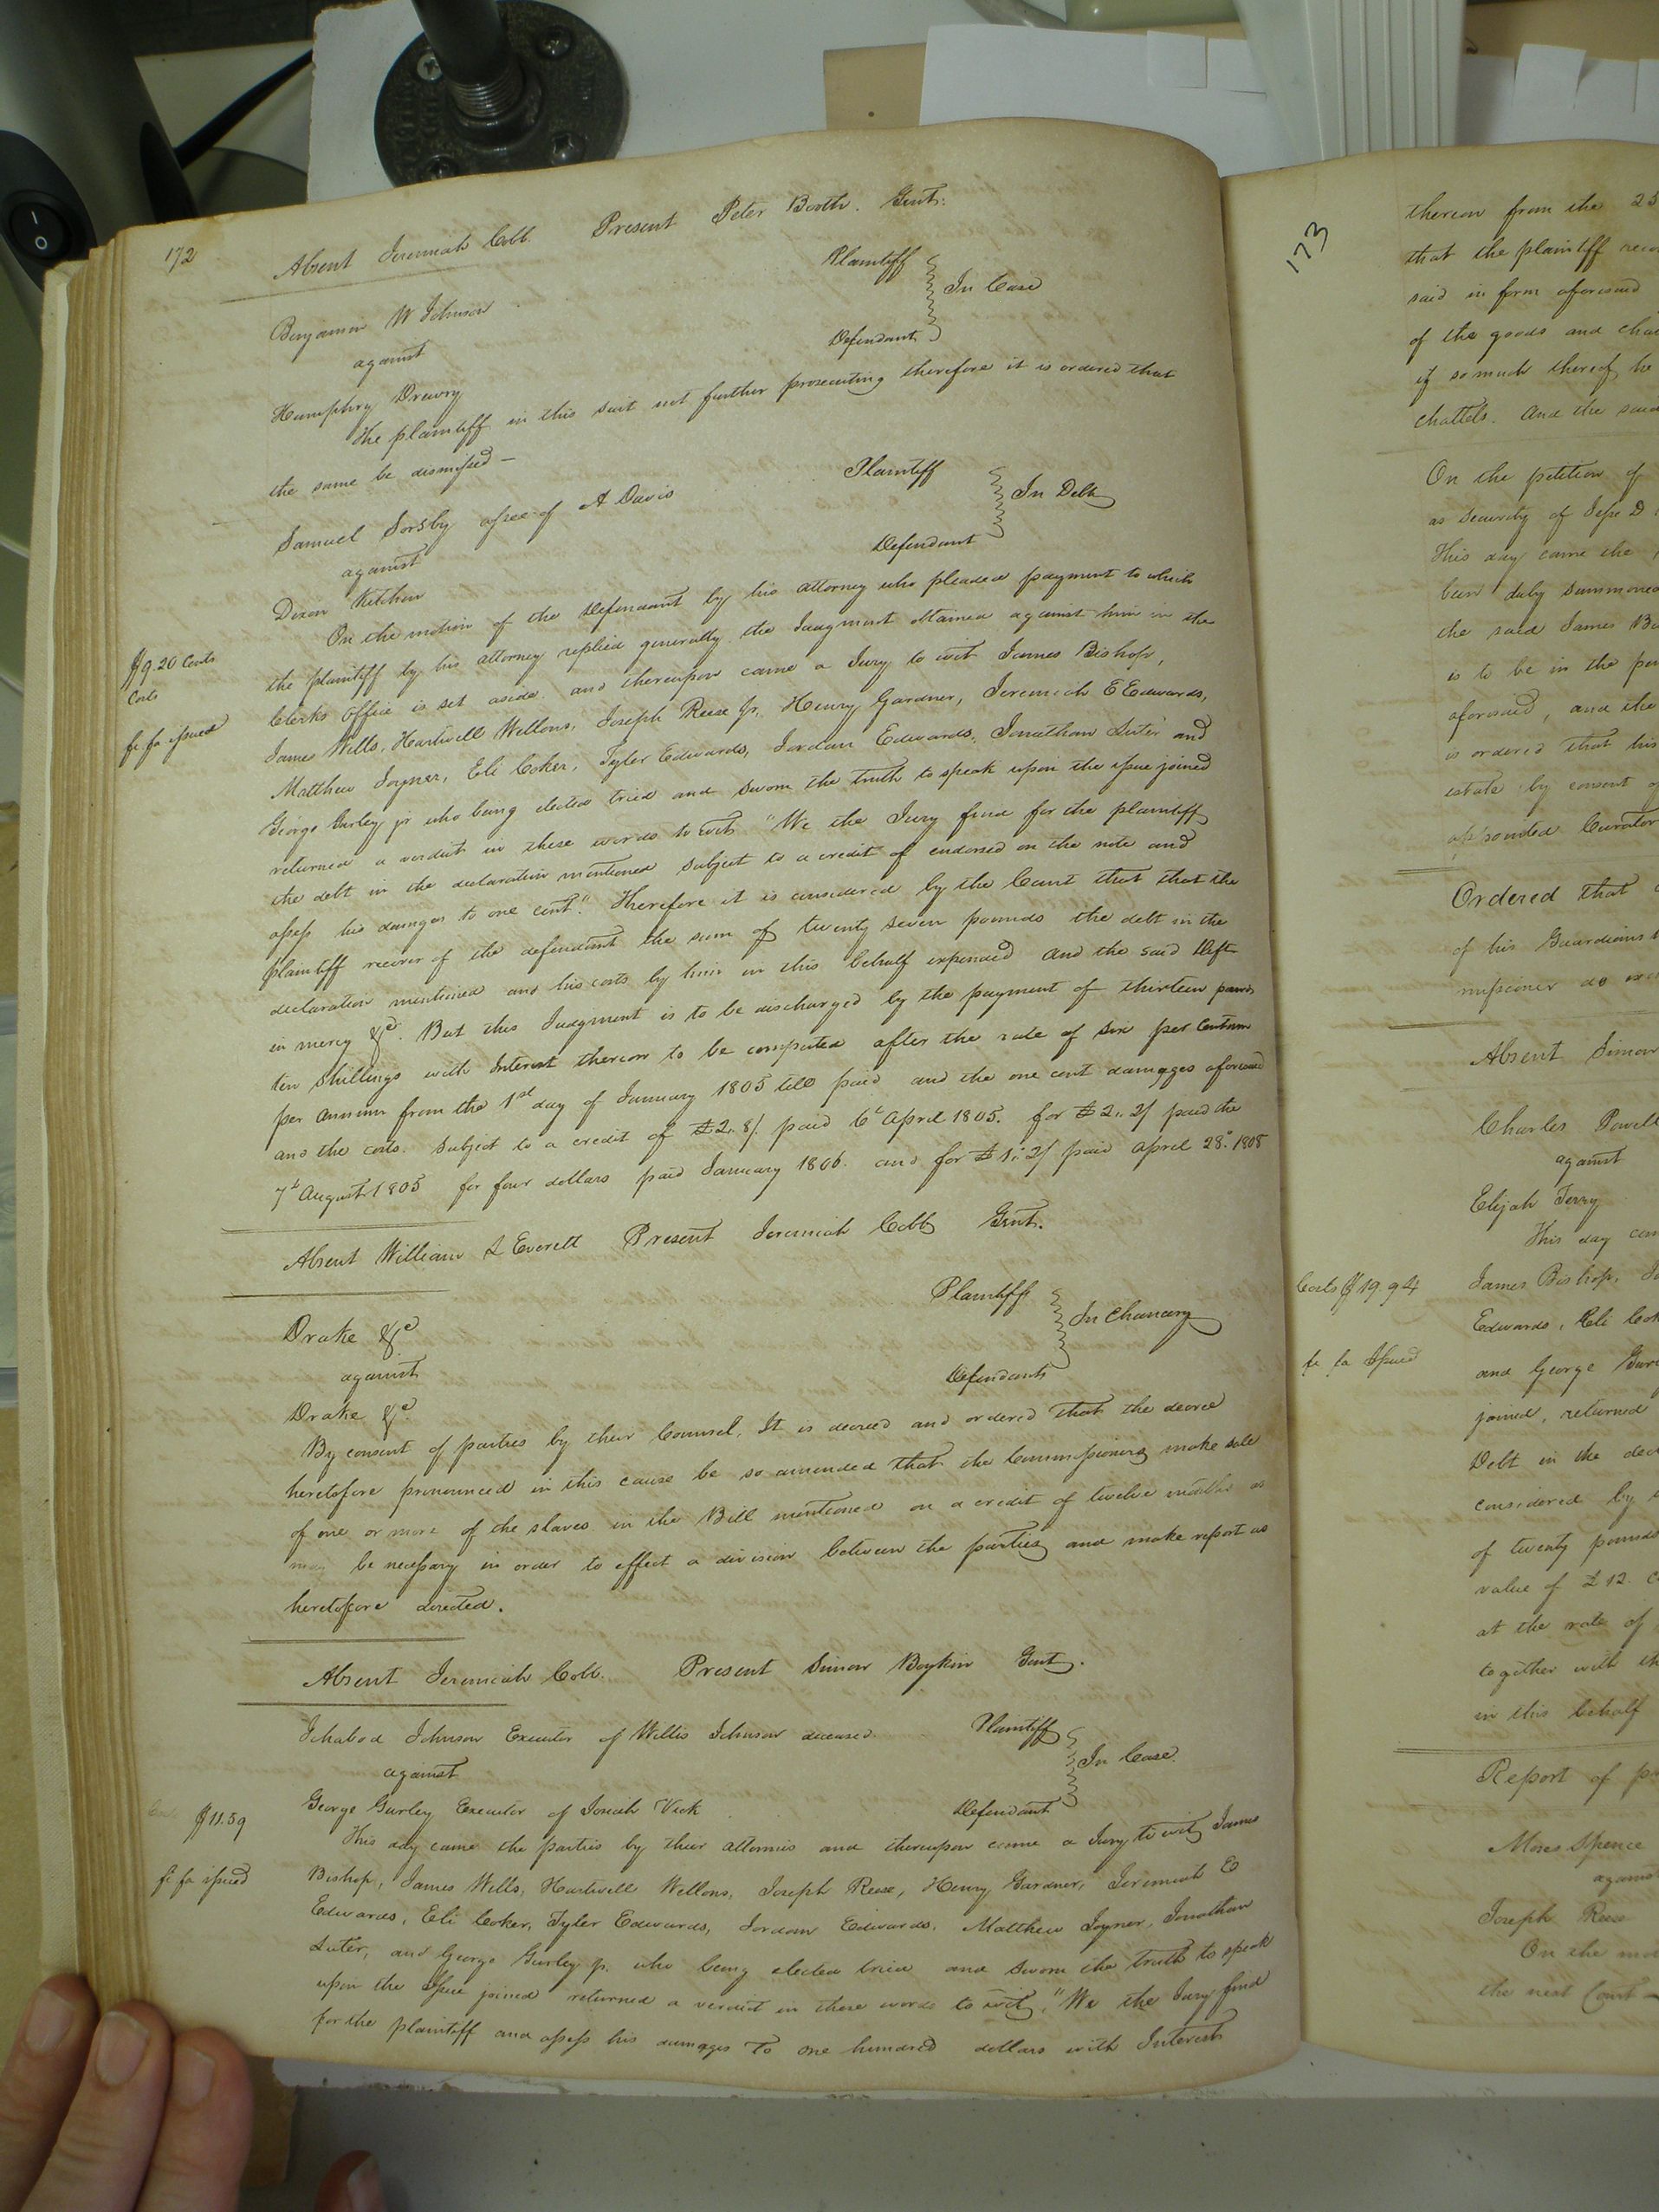 172
Absent Jeremiah Cobb. Present Peter Booth. Gent.
Benjamin W Johnson Plaintiff
against In Case
Humphry Drewry Defendant
The plaintiff in this suit not further prosecuting therefore it is ordered that
the same be dismissed —
Samuel Sorsby assee of A Davis Plaintiff
against In Debt
Dixon Kitchen Defendant
$9.20 Cents
Costs
fi fa issued
On the motion of the Defendant by his attorney who pleaded payment to which
the plaintiff by his attorney replied generally the Judgment obtained against him in the
Clerks Office is set aside. and thereupon came a Jury to wit James Bishop,
James Wills, Hartwell Wellons, Joseph Reese Jr, Henry Gardner, Jeremiah E Edwards,
Matthew Joyner, Eli Coker, Tyler Edwards, Jordan Edwards, Jonathan Suter and
George Gurley jr who being elected tried and sworn the truth to speak upon the issue joined
returned a verdict in these words to wit "We the Jury find for the plaintiff
the debt in the declaration mentioned subject to a credit of endorsed on the note and
assess his damages to one cent." Therefore it is considered by the Court that that the
plaintiff recover of the defendant the sum of twenty seven pounds the debt in the
declaration mentioned and his costs by him in this behalf expended and the said Deft
in mercy &c. But this Judgment is to be discharged by the payment of thirteen pounds
ten shillings with Interest thereon to be computed after the rate of six per Centum
per annum from the 1st day of January 1805 till paid and the one cent damages aforesaid
and the costs. Subject to a credit of £2.. 8/. paid 6th April 1805. for £2.. 2/ paid the
7th August 1805 for four dollars paid January 1806. and for £1.. 2/ paid april 28. 1808
Absent William L Everett Present Jeremiah Cobb Gent.
Drake &c Plaintiffs
against In Chancery
Drake &c Defendants
By consent of parties by their Counsel, It is decreed and ordered that the decree
heretofore pronounced in this cause be so amended that the Commissioners make sale
of one or more of the slaves in the Bill mentioned on a credit of twelve months as
may be necessary in order to effect a division between the parties and make report as
heretofore directed.
Absent Jeremiah Cobb. Present Simon Boykin Gent.
Ichabod Johnson Executor of Willis Johnson deceased Plaintiff
against In Case.
George Gurley Executor of Josiah Vick Defendant
$11.59
fi fa issued
This day came the parties by their attornies and thereupon came a Jury to wit James
Bishop, James Wills, Hartwell Wellons, Joseph Reese, Henry Gardner, Jeremiah E
Edwards, Eli Coker, Tyler Edwards, Jordan Edwards, Matthew Joyner, Jonathan
Suter, and George Gurley jr. who being elected tried and sworn the truth to speak
upon the Issue joined returned a verdict in these words to wit, "We the Jury find
for the plaintiff and assess his damages to one hundred dollars with Interest
173
thereon from the 25
that the plaintiff
said in form aforesaid
of the goods and
if so much thereof he
chattels. And the said
On the petition of
as security of Jesse D
This day came the
been duly summoned
the said James
is to be in the
aforesaid, and the
is ordered that his
estate by consent
appointed Curator
Ordered that
of his Guardians
missioner do
Absent Simon
Charles Powell
against
Elijah Terry
This day
Costs $19.94
fi fa Issued
James Bishop,
Edwards, Eli
and George
joined, returned
Debt in the
considered by
of twenty pounds
value of £12.
at the rate of
together with
in this behalf
Report of
Moses Spence
Joseph Reese
On the
the next Court